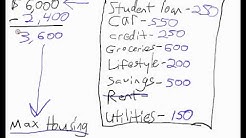 $ 6,000
- 2,400
3,600
Max Housing
Student loan - 250
Car - 550
credit - 250
Groceries - 600
Lifestyle - 200
Savings - 500
Rent
Utilities - 150